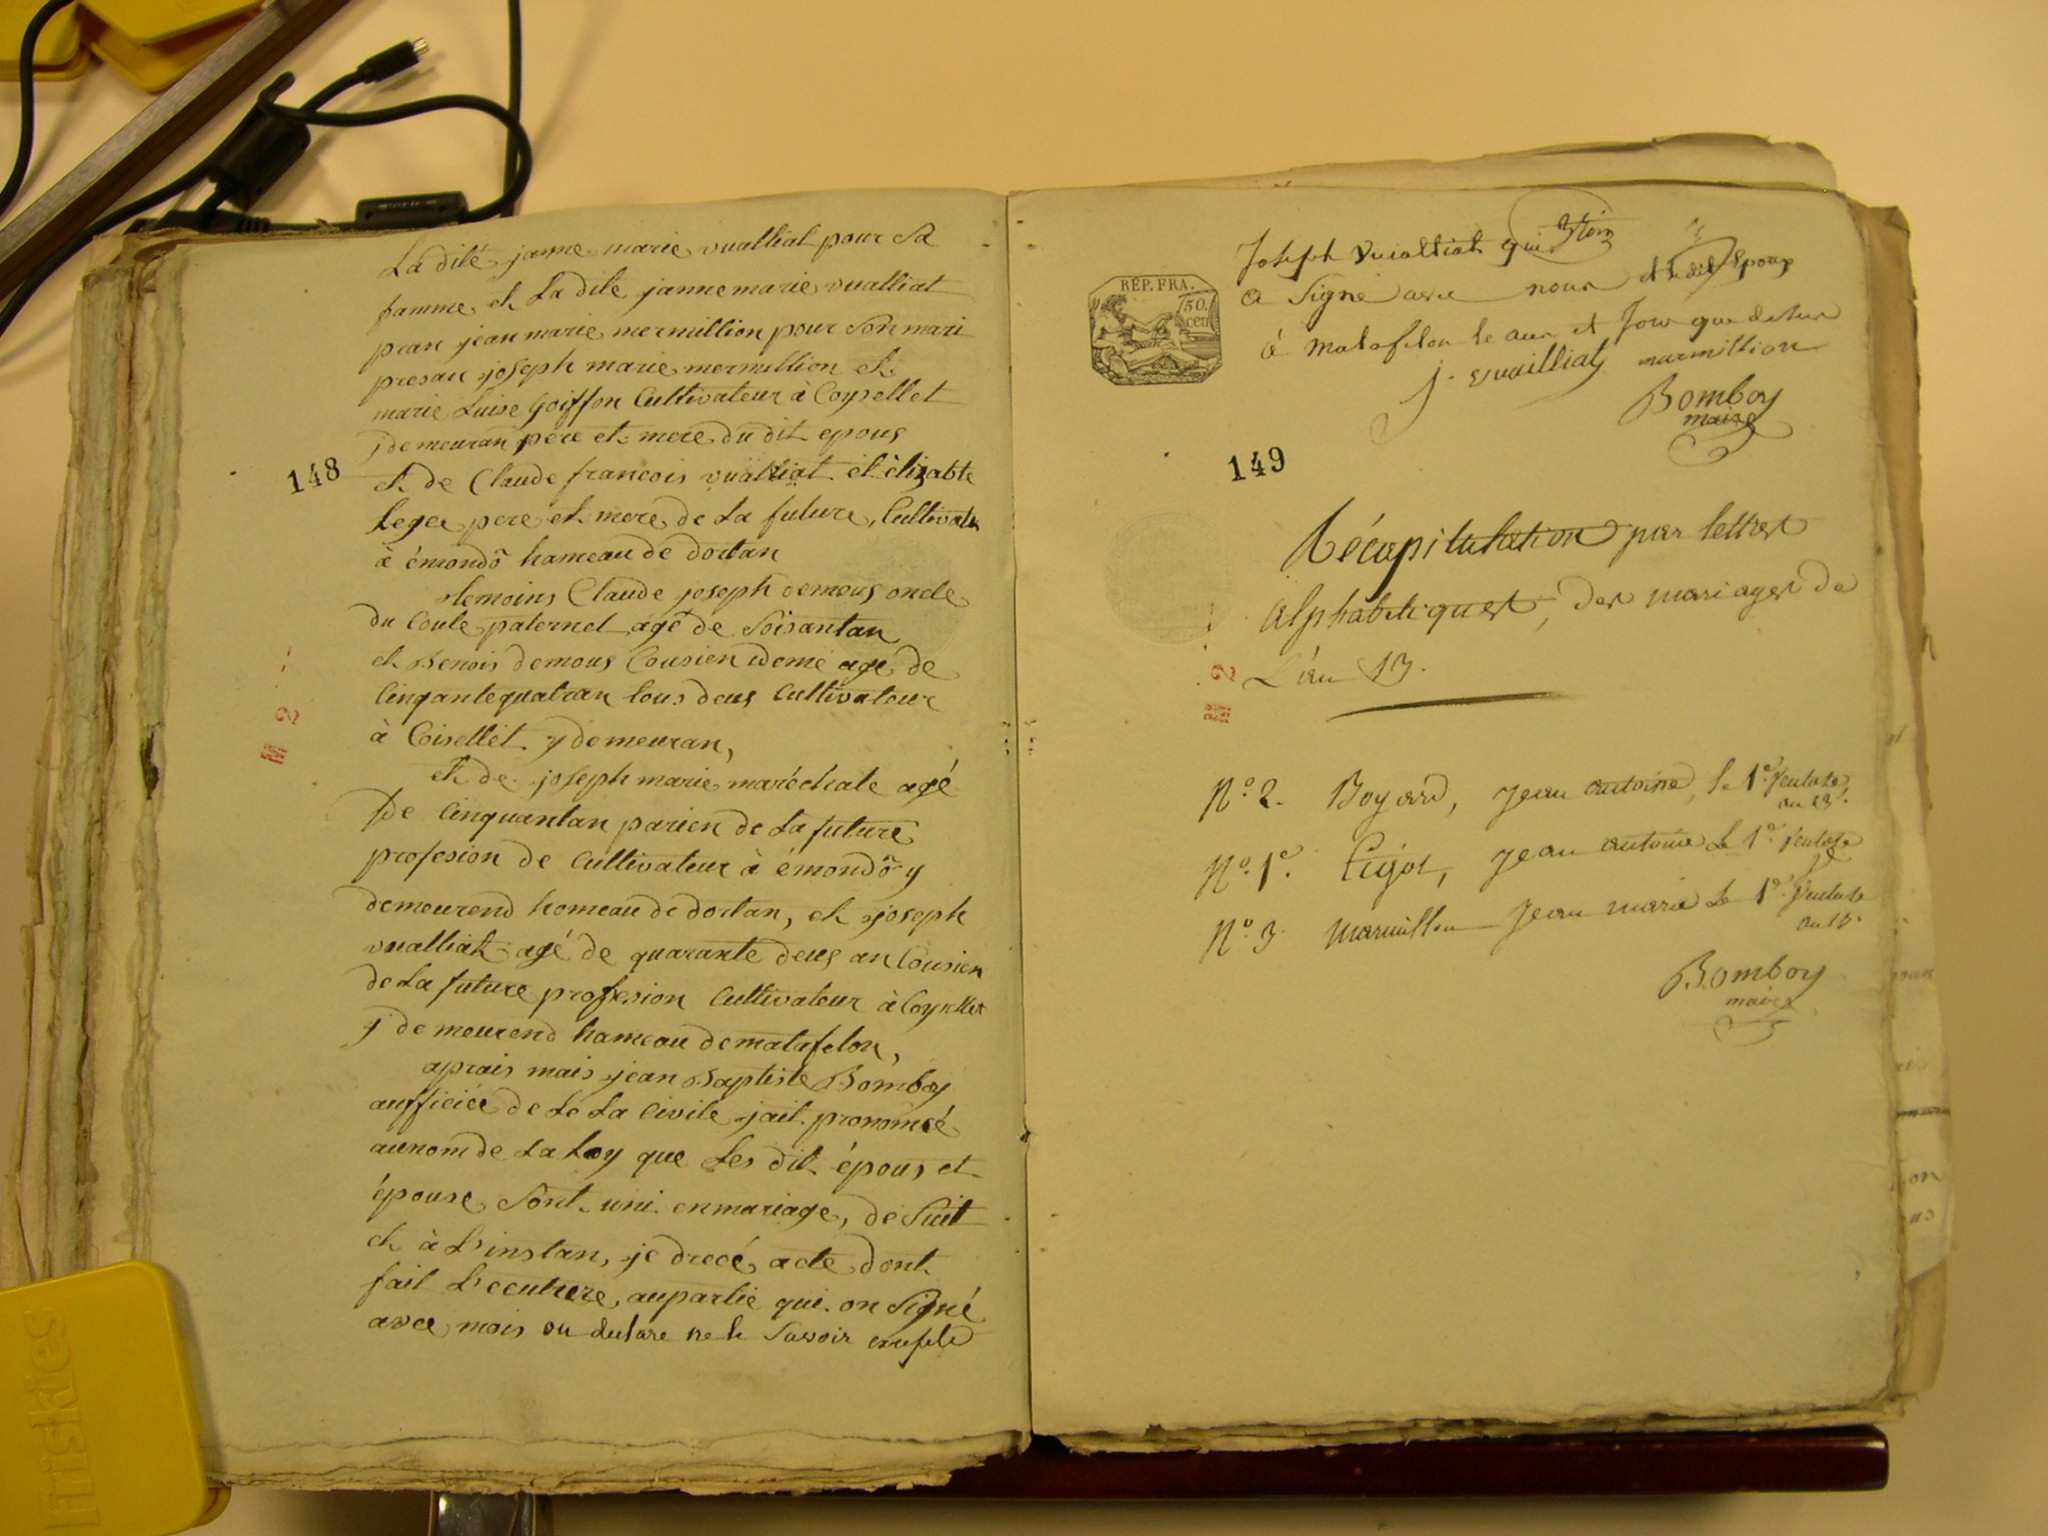 La dite janne marie vualliat pour sa
famme et La dite janne marie vualliat
pran jean marie mermillion pour son mari
presan joseph marie mermillion et
marie Luise Goiffon Cultivateur à Coysellet
y demeuran pere et mere du dit epous
148
et de Claude francois vualliat et élizabte
Leger pere et mere de La future, Cultivate
à émondô hameau de dortan
temoins Claude joseph demous oncle
du Couté paternel agé de Soisantan
et Benois demous Cousien idemé agé de
Cinqante quatran tous deus Cultivateur
à Coisellet y demeuran,
et de joseph marie maréchale agé
De Cinquantan parien de La future
profesion de Cultivateur à émondô y
demeurend homeau de dortan, et joseph
vualliat agé de quarante deus an Cousien
de La future profesion Cultivateur à Coysellet
y demeurend hameau de matafelon,
aprais mais jean Baptiste Bomboy
aufficiée de Le La Civile jait pronomsé
au nom de La Loy que Les dit épous et
épouse Sont uni en mariage, de Suit
et à L'instan, je drecé acte dont
fait L'ecuture, au partie qui on Signé
avec mois ou declare ne le Savoir
RÉP. FRA.
50.
cen
Joseph Vuialliat qui
a Signé avec nous et le dit Epoux
à Matafelon le aun et Jour que desus
j. vuailliat marmillion
Bomboy
maire
149
Récapitulation par lettres
alphabetiques, des mariages de
L'an 13.
2
N.º 2. Boyard, Jean antoine, le 1º. Ventose
an 13.
N.º 1º. Pigot, Jean antoine Le 1º. Ventose
N.º 3. Marmillon Jean marie Le 1º. Ventose
an 13.
Bomboy
maire
2
Friskies